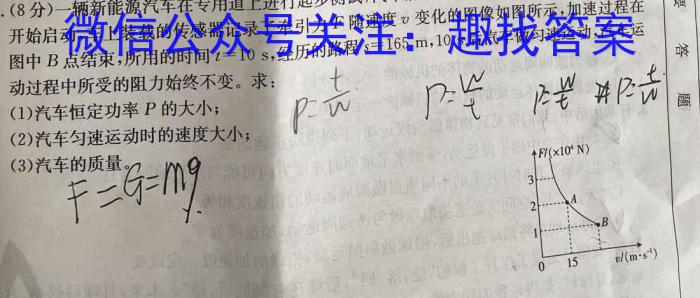 .(8分)一辆新能源汽车在专用道上进行起步测
开始启动,车上装载的传感器记录了牵引力随速度v变化的图像如图所示,加速过程在
微信公众号关注:趣找答案
图中B点结束,所用的时间t=10 s,经历的路程s=165 m,10 运
动过程中所受的阻力始终不变。求:
(1)汽车恒定功率P的大小;
(2)汽车匀速运动时的速度大小;
(3)汽车的质量。
P=t/w
P=w/t
P=w/t P=t/w
F=G=mg
F/(×10⁴ N)
3
2
A
1
B
0
15
v/(m·s⁻¹)
答
题